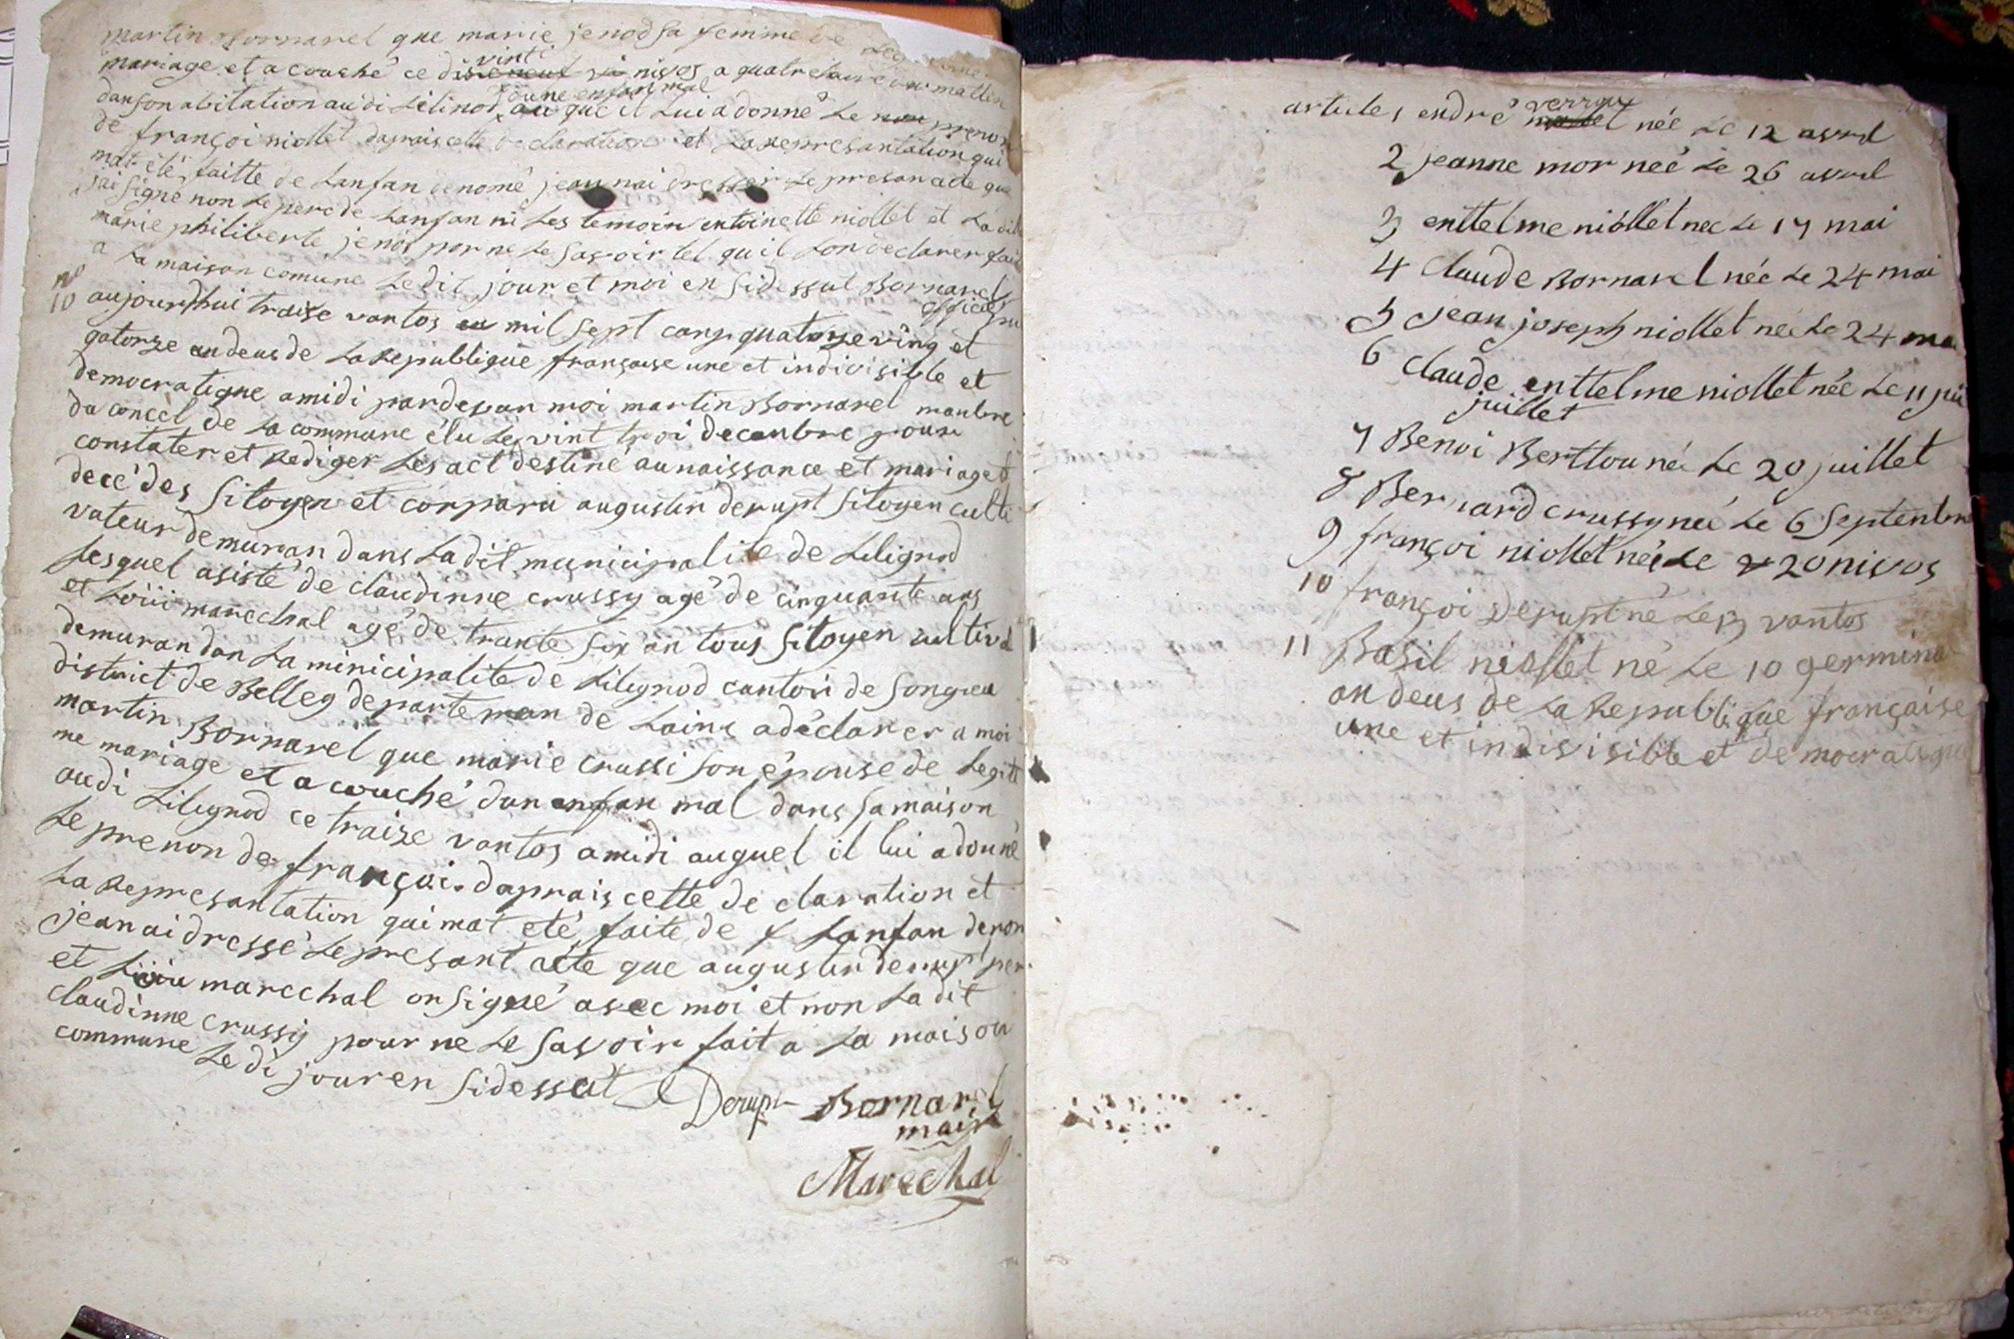 martin Bornarel que marie jenod sa femme de
mariage et a couché ce vinti nivos a quatre matin
d'une enfan mal
dan son abitation audi Lilinod au que il Lui a donné Le prenon
de françoi niollet daprais cette declaration et La represantation qui
mat été faitte de Lanfan denomé jeannai dresser Le presan acte que
jai signé non Le pere de Lanfan ni Les temoin entoinette niollet et La dit
marie philiberte jenod por ne Le savoir tel quil Lon declarer fait
a La maison comune Le dit jour et moi en sidessut Bornarel
officier
no
10 aujourdhui traize vantos mil sept canp quatorze ving et
gatorze en deus de La Republique française une et indivisible et
democratique amidi pardevan moi martin Bornarel manbre
du concel de La commune élu Le vint troi decanbre pour
constater et Rediger Les act destiné au naissance et mariage et
decé des sitoyen et conparu augustin derupt sitoyen culti
vateur demuran dans La dit municipalite de Lilignod
Lesquel asisté de claudinne crussy agé de cinquante ans
et Loüi marechal agé de trante six an tous sitoyen cultiva
demuran dan La minicipalite de Lilignod canton de songieu
district de Belley departeman de Lainc a déclarer a moi
martin Bornarel que marie crussi son épouse de Legiti
me mariage et a couché dun enfan mal dans sa maison
audi Lilignod ce traize vantos amidi auquel il lui a donné
Le prenon de françoi. daprais cette de claration et
La Represantation qui mat eté faite de f Lanfan denon
jean ai dressé Le presant acte que augustin derupt per
et Loüi marechal on signé avec moi et non La dit
claudinne crussy pour ne Le savoir fait a La maison
commune Le di jour en sidessut
Derupt Bornarel
maire
Marechal
verrau
articles 1 endré née Le 12 avril
2 jeanne mor neé Le 26 avril
3 enttelme niollet neé Le 17 mai
4 claude Bornarel née Le 24 mai
5 jean joseph niollet neé Le 24 mai
6 claude enttelme niollet née Le 11 jui
juillet
7 Benoi Berttou neé Le 20 juillet
8 Bernard crussy neé Le 6 septenbre
9 françoi niollet née Le 20 nivos
10 françoi Derupt né Le 13 vantos
11 Basil niollet né Le 10 germinal
an deus de La Republique française
une et indivisible et democratique